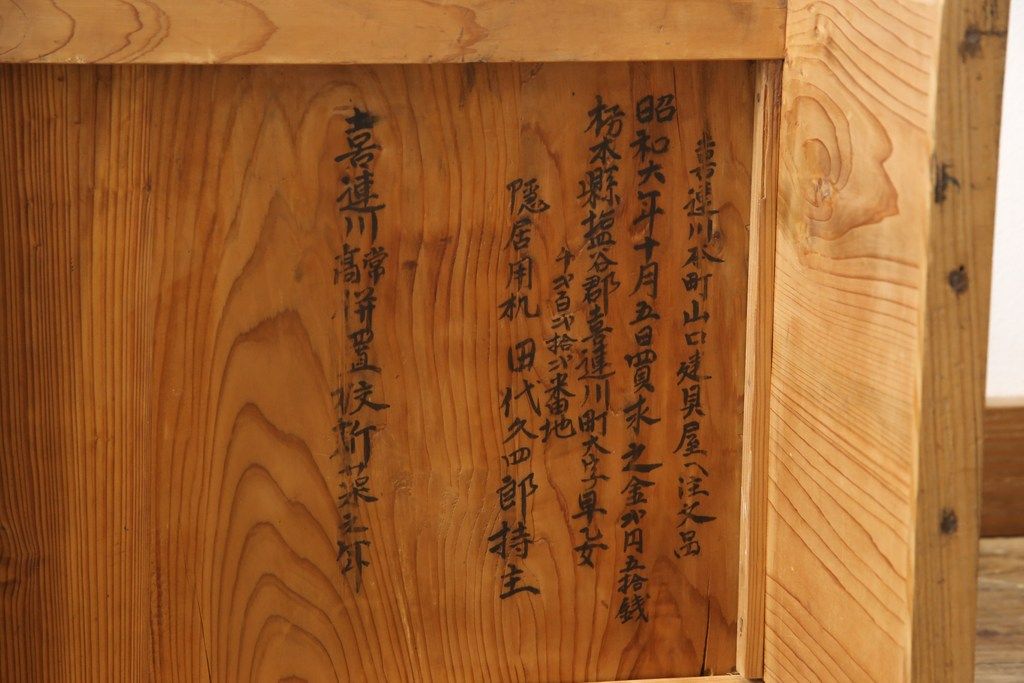 喜連川本町山口建具屋へ注文品
昭和六年十月五日買求之金弐円五拾銭
栃木縣塩谷郡喜連川町大字早乙女
千弐百弐拾弐番地
隠居用机 田代久四郎持主
喜連川高常併置校新築之年